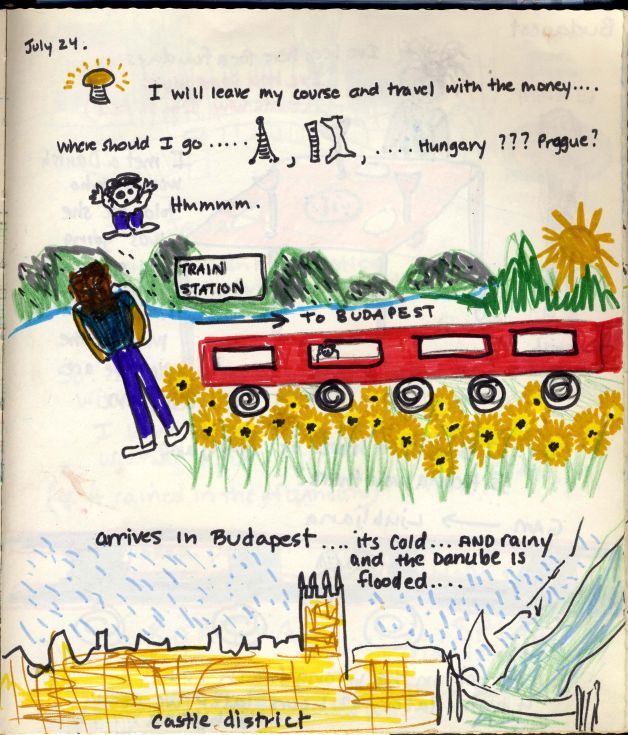 July 24.
I will leave my course and travel with the money....
where should I go ..... , , .... Hungary ??? Prague?
Hmmmm.
TRAIN
STATION
TO BUDAPEST
arrives in Budapest .... its cold... AND rainy
and the Danube is
flooded....
castle district